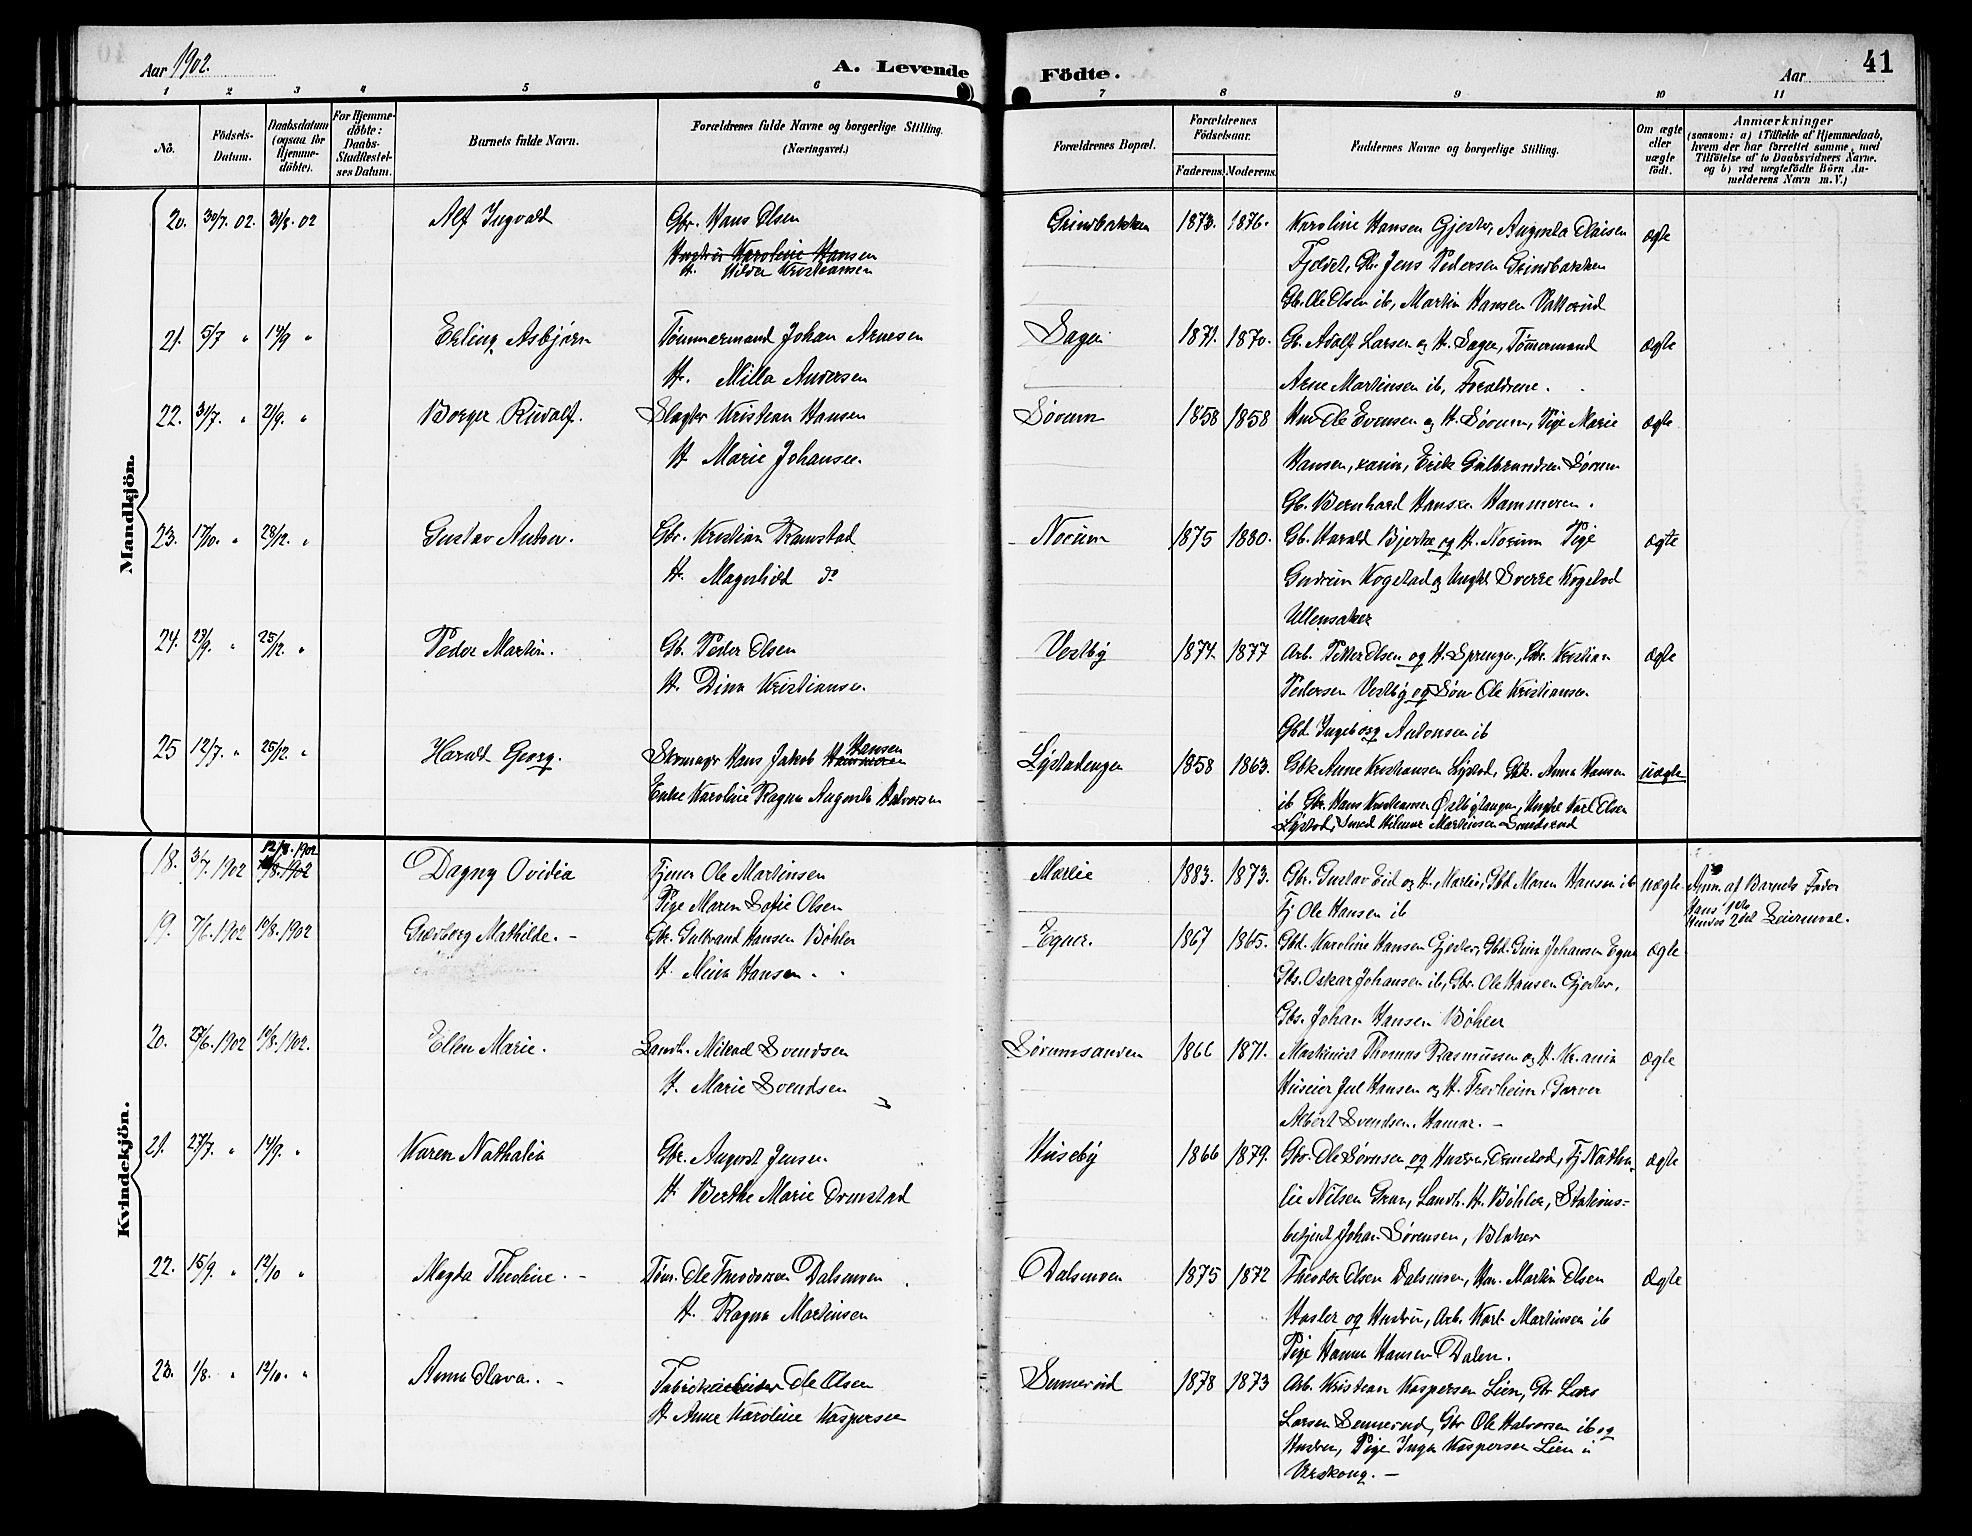 Aar 1902.
A. Levende Födte.
Aar
41
1 2 3 4 5 6 7 8 9 10 11
Nö.
Födsels-Datum.
Daabsdatum (ogsaa for Hjemme-döbte).
For Hjemme-döbte: Daabs-Stadfæstel-ses Datum.
Barnets fulde Navn.
Forældrenes fulde Navne og borgerlige Stilling.
(Næringsvei.)
Forældrenes Bopæl.
Forældrenes Födselsaar.
Faderens. Moderens.
Faddernes Navne og borgerlige Stilling.
Om ægte eller uægte födt.
Anmærkninger
(saasom: a) i Tilfælde af Hjemmedaab, hvem der har forrettet samme, med Tilföielse af to Daabsvidners Navne. og b) ved uægtefödte Börn An-melderens Navn m. V.)
Mandkjön.
20. 30/7. 02. 31/8. 02 Alf Ingvald Gbr. Hans Olsen Grindbakken 1873. 1876. Karoline Hansen Gjester, Augusta Olaisen ægte
Hustru Karoline Hansen Fjeldet, Gbr. Jens Pedersen Grindbakken
H. Hilda Kristiansen Gbr. Ole Olsen ib, Martin Hansen Vakkerud
21. 5/7 " 14/9 " Erling Asbjørn Tømmermand Johan Arnesen Sagen 1871. 1870. Gb. Adolf Larsen og H. Sagen, Tømmermand ægte
H. Milla Andersen Arne Martinsen ib, Forældrene.
22. 31/7. " 21/9. " Borger Rudolf. Slagter Kristian Hansen Sørum 1858 1858 Ole Evensen og H. Sørum, Pige Marie ægte
H Marie Johansen. Hansen, Erik Gulbrandsen Sørum
Gb. Bernhard Hansen Hammeren.
23. 17/10. " 28/12. " Gustav Anton. Gbr. Kristian Ramstad Norum 1875 1880. Gb. Harald Bjerke og H. Norum Pige ægte
H. Magnhild do Gudrun Kogstad og Ungkl Sverre Kogstad
Ullensaker
24. 23/9. " 25/12. " Peder Martin. Gb. Peder Olsen Vestby 1874 1877 Arb. Petter Olsen og H. Sprengen, Gbr. Kristian ægte
H. Dina Kristiansen. Pedersen Vestby og Søn Ole Kristiansen
Gbd Ingeborg Antonsen ib
25 12/7. " 25/12. " Harald Georg. Skomager Hans Jakob Hammeren Hansen Lystadengen 1858 1863. Gbk Anne Kristiansen Lystad, Gbk. Anna Hansen uægte
Enke Karoline Ragna Augusta Halvorsen ib Gbr. Hans Kristiansen Østbytangen, Ungkl Karl Olsen
Lystad, Smed Hilmar Martinsen
Kvindekjön.
18. 3/7. 1902 12/8. 1902 Dagny Ovidia Tjener Ole Martinsen Merlie 1883. 1873. Gbr. Gustav Eid og H. Merlie, Gbd Maren Hansen ib uægte Anm. af Barnets Fader
Pige Maren Sofie Olsen Tj Ole Hansen ib Hans 1ste Hendes 2det Leiermaal.
19. 7/6. 1902 10/8. 1902 Gudborg Mathilde. Gbr. Gulbrand Hansen Bøhler Egner. 1867 1865. Gbd. Karoline Hansen Gjester, Gbd. Gina Johansen Egner ægte
H. Mina Hansen. Gbs. Oskar Johansen ib, Gbr. Ole Hansen Gjester,
Gbs. Johan Hansen Bøhler
20. 27/6. 1902 10/8. 1902. Ellen Marie. Landh. Mikael Svendsen Sørumsanden 1866 1871. Maskinist Thomas Rasmussen og H. Kr.ania ægte
H. Marie Svendsen Huseier Jul Hansen og H. Fredheim, Garver
Albert Svendsen, Hamar.
21. 27/7. " 14/9. " Karen Nathalia Gbr. August Jensen Huseby 1866 1879. Gbr. Ole Sørensen og Hustru, Ormstad, Tj Natha- ægte
H Berthe Marie Ormstad lie Nilsen Gran, Landh. H. Bøhler, Stations-
betjent Johan Sørensen, Blaker
22. 15/9. " 12/10 " Magda Theoline. Tøm. Ole Theodorsen Dalsmoen Dalsmoen 1875 1872 Theodor Olsen Dalsmoen, Martin Olsen Ægte
H. Ragna Martinsen Hasler og Hustru, Arb. Karl Martinsen ib
Pige Hanna Hansen Dalen.
23. 1/8. " 12/10. " Anna Olava. Fabrikarbeider Ole Olsen Sennerud 1878 1873 Arb. Kristian Kaspersen Lien, Gbr Lars
H Anne Karoline Kaspersen Larsen Sennerud, Gbr Ole Halvorsen ib og
Hustru, Pige Inga Kaspersen Lien i
Urskoug.